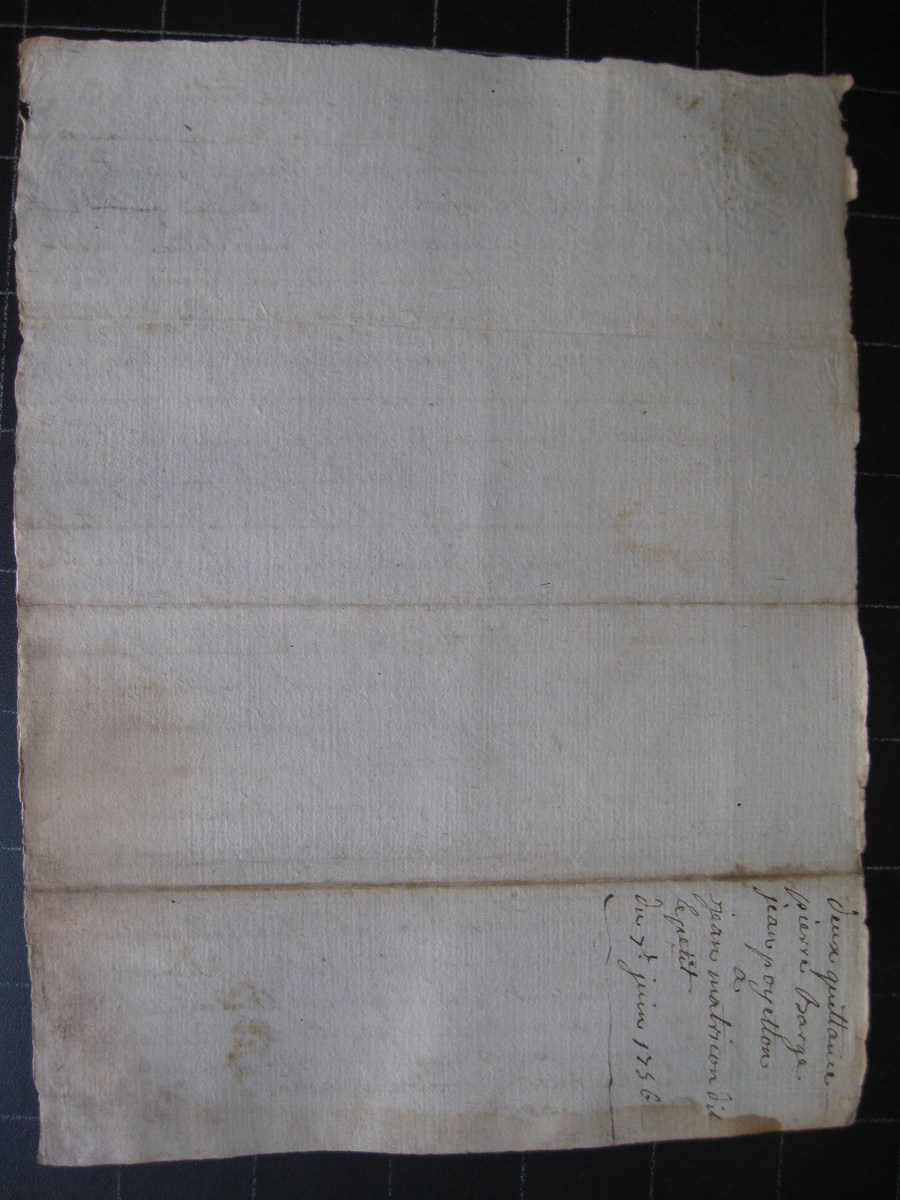 deux quittance
pierre Barge
jean poyetton
a
jean matricon dit
lepetit
du 7e juin 1756